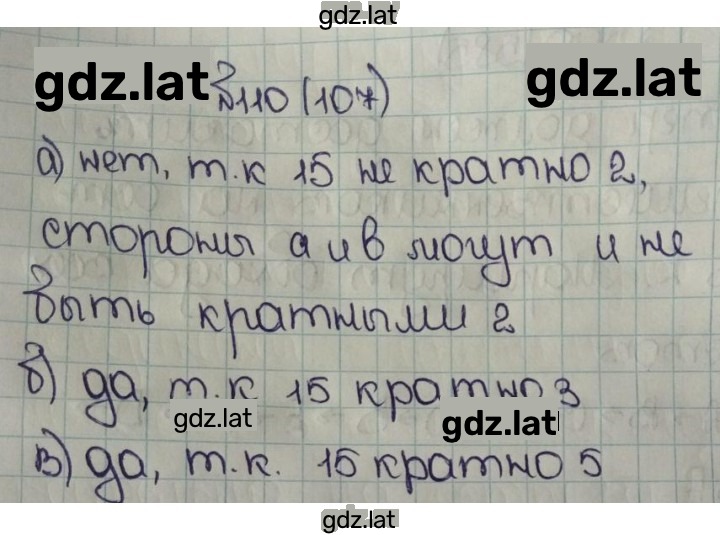 gdz.lat
gdz.lat №110 (107) gdz.lat
а) нет, т.к 15 не кратно 2,
стороны а и в могут и не
быть кратными 2
б) да, т.к 15 кратно 3
gdz.lat gdz.lat
в) да, т.к. 15 кратно 5
gdz.lat